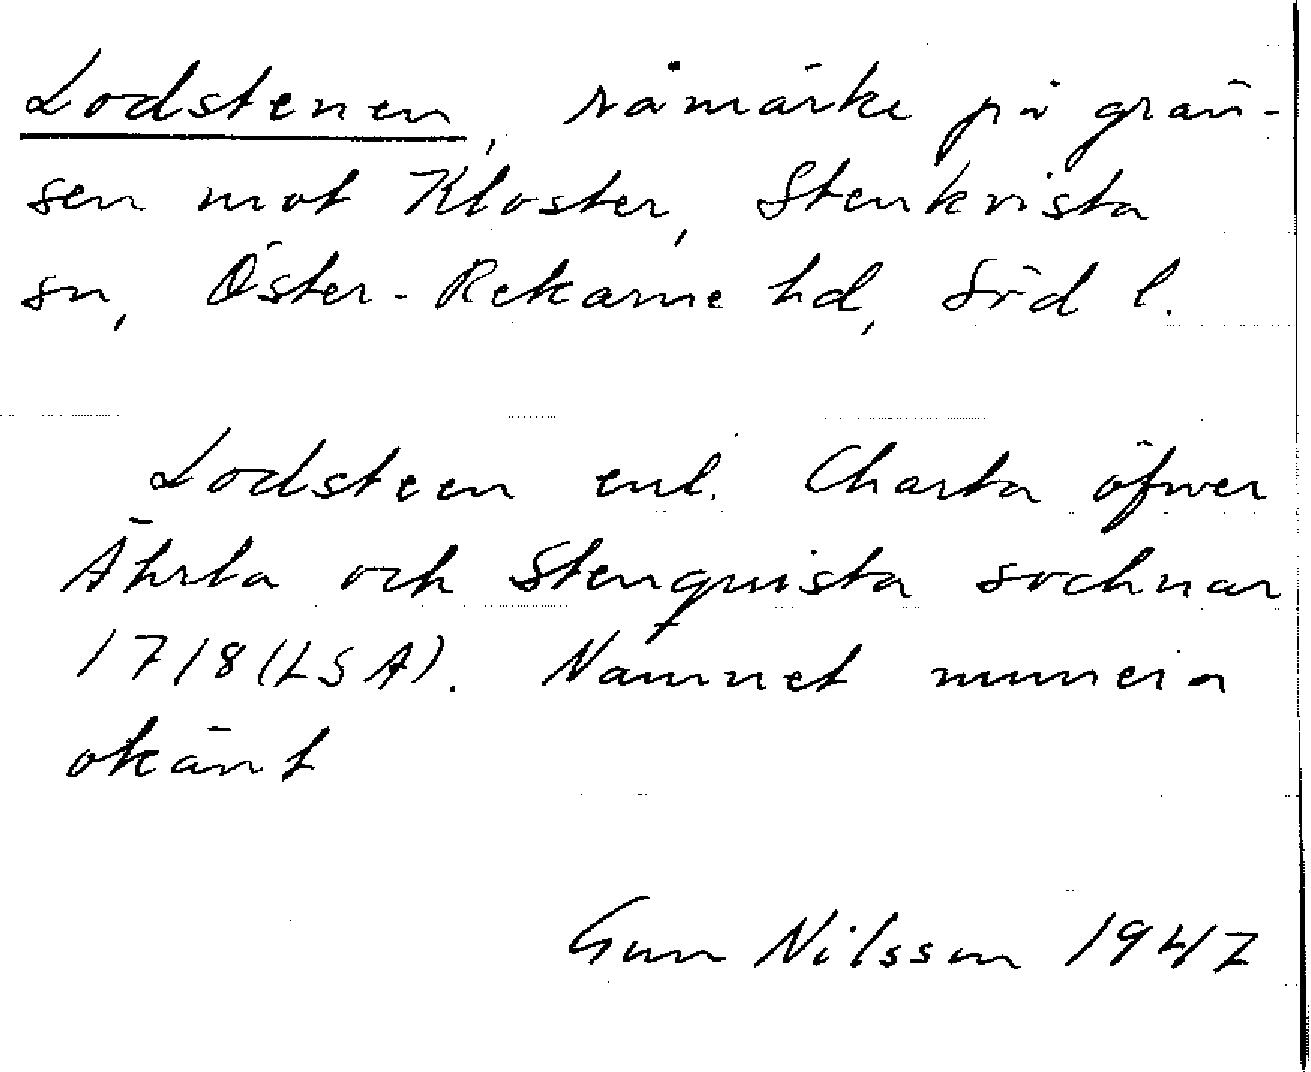 Lodstenen, råmärke på grän-
sen mot Kloster, Stenkvista
sn, Öster-Rekarne hd, Söd l.
Lodsteen enl. Charta öfwer
Ährla och Stenquista sochnar
1718 (LSA). Namnet numera
okänt
Gun Nilsson 1947